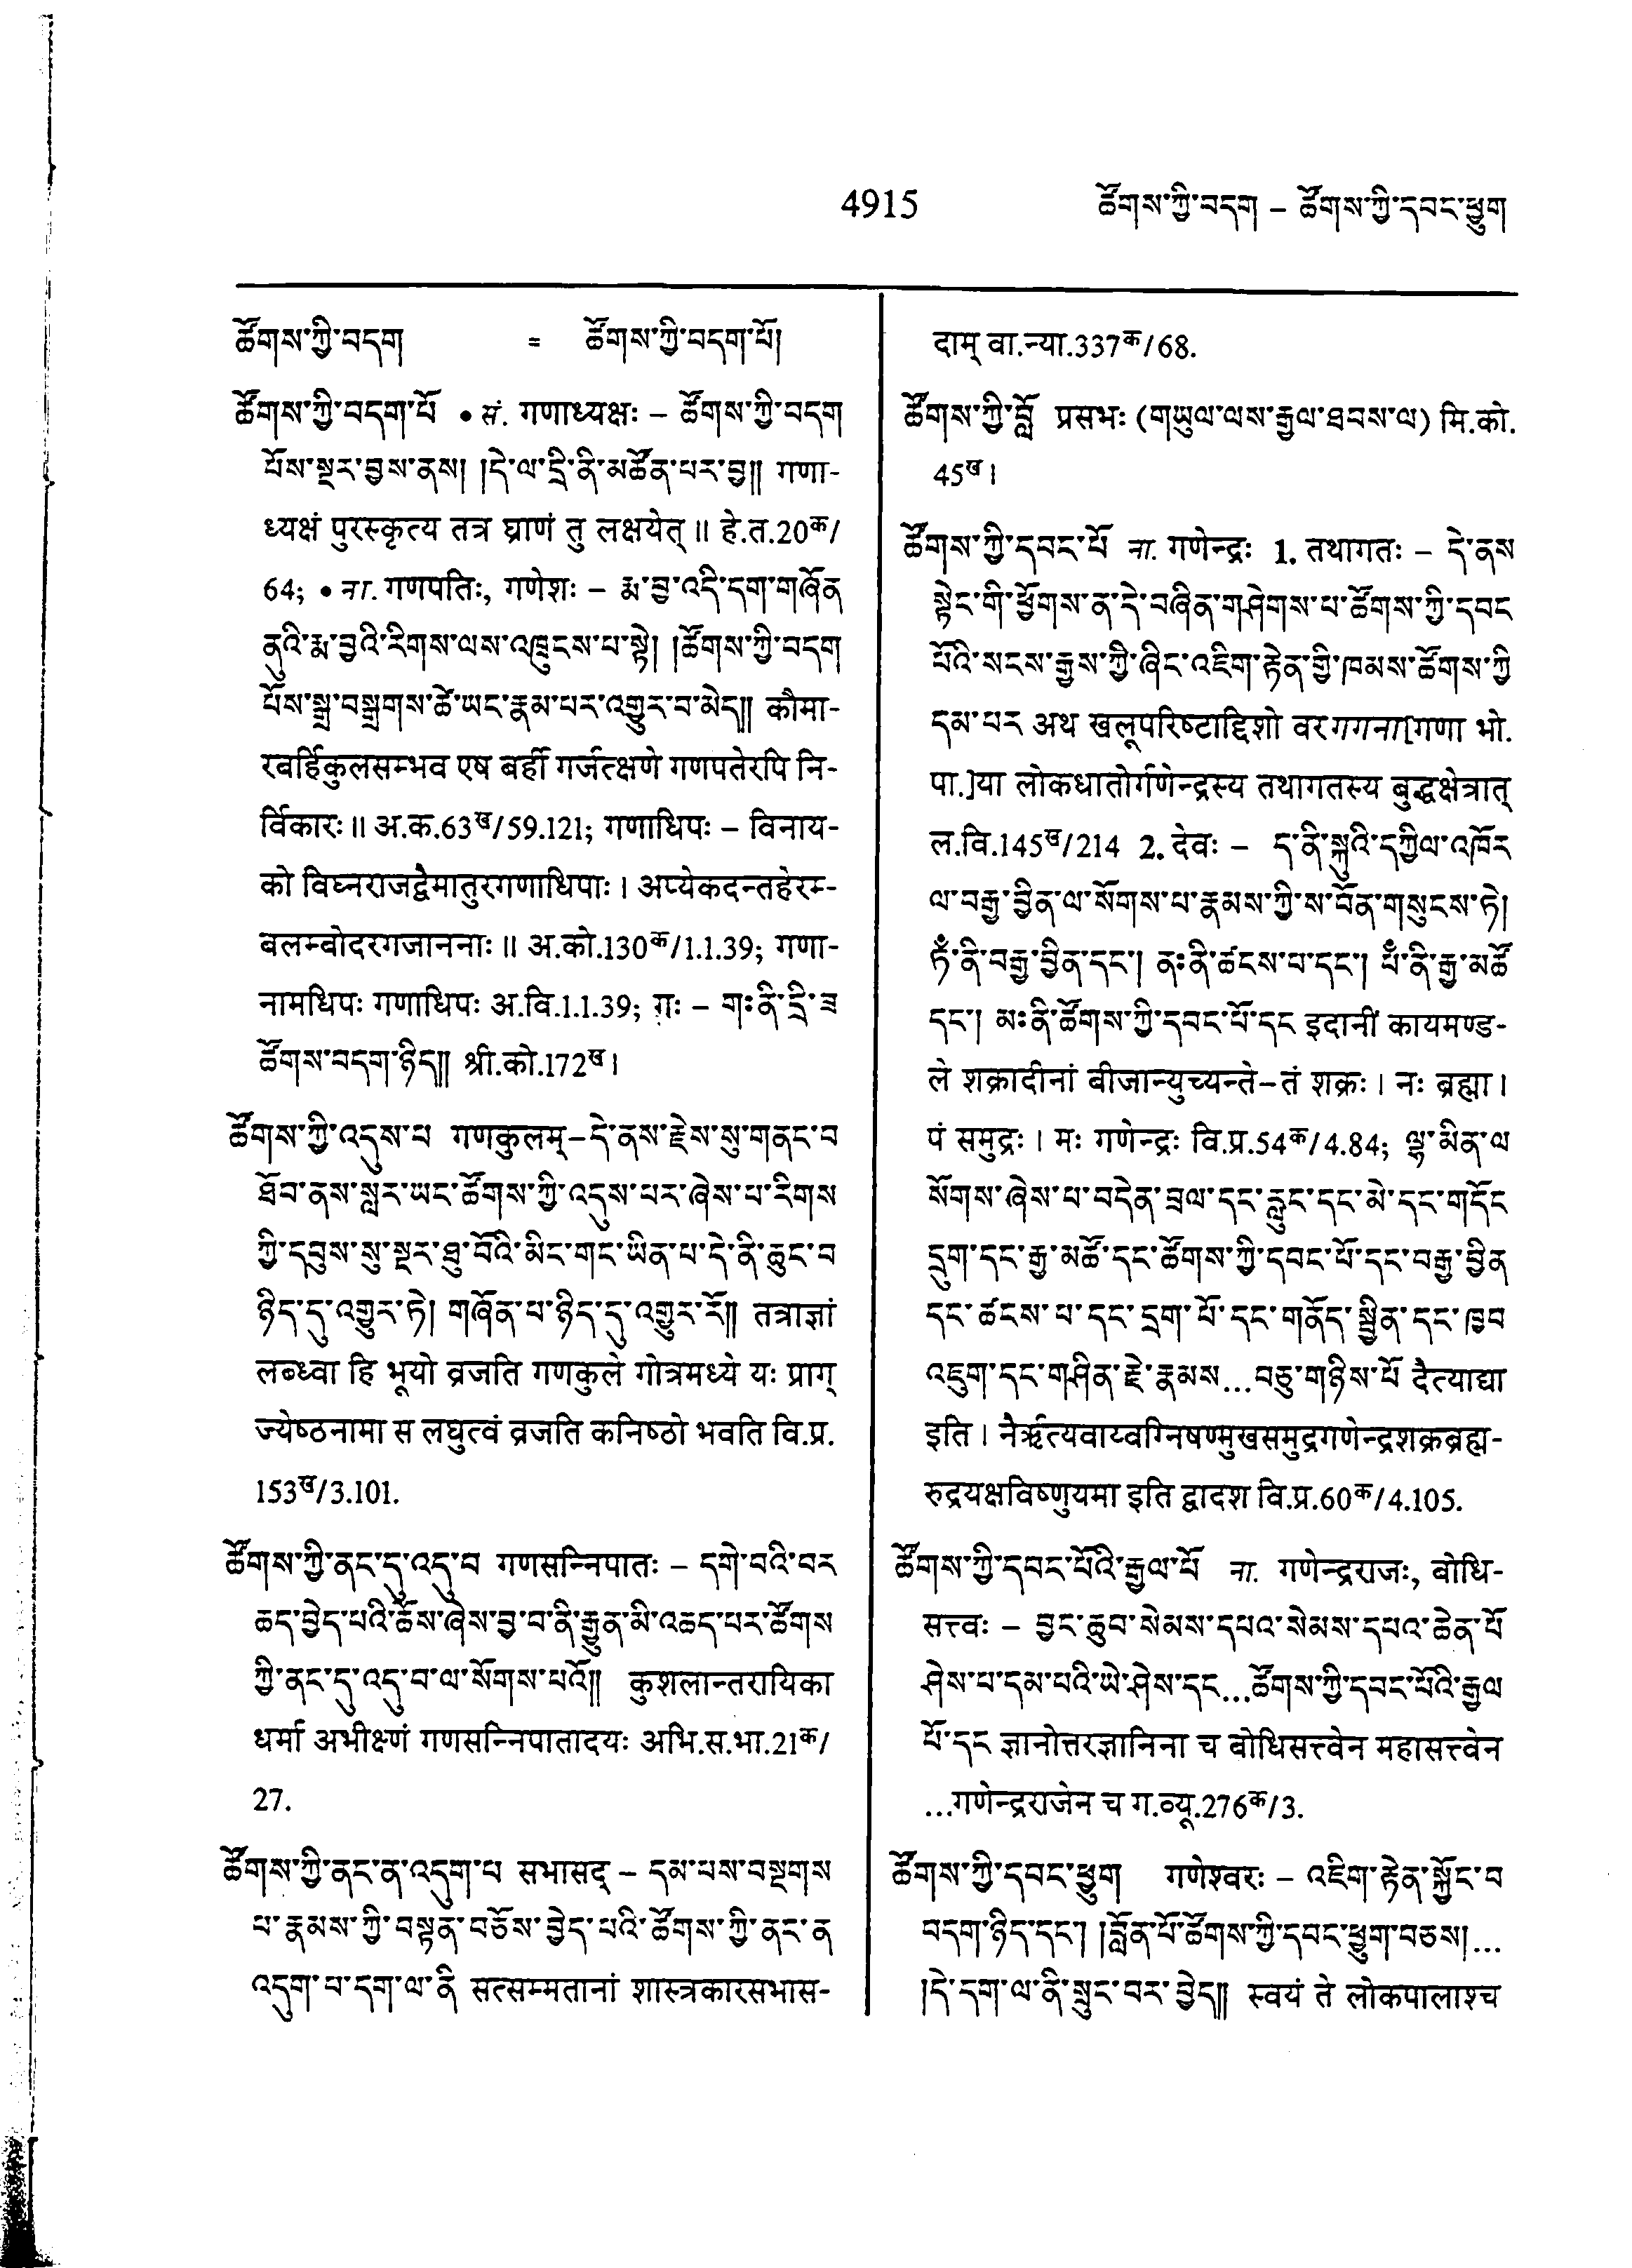 4915 ཚོགས་ཀྱི་བདག – ཚོགས་ཀྱི་དབང་ཕྱུག
ཚོགས་ཀྱི་བདག = ཚོགས་ཀྱི་བདག་པོ།
ཚོགས་ཀྱི་བདག་པོ • सं. गणाध्यक्षः – ཚོགས་ཀྱི་བདག
པོས་སྔར་བྱས་ནས། །དེ་ལ་དྲི་ནི་མཚོན་པར་བྱ།། गणा-
ध्यक्षं पुरस्कृत्य तत्र घ्राणं तु लक्षयेत् ॥ हे.त.20क/
64; • ना. गणपतिः, गणेशः – རྨ་བྱ་འདི་དག་གཞོན
ནུའི་རྨ་བྱའི་རིགས་ལས་འཁྲུངས་པ་སྟེ། །ཚོགས་ཀྱི་བདག
པོས་སྒྲ་བསྒྲགས་ཚེ་ཡང་རྣམ་པར་འགྱུར་བ་མེད།། कौमा-
रबर्हिकुलसम्भव एष बर्ही गर्जत्क्षणे गणपतेरपि नि-
र्विकारः ॥ अ.क.63ख/59.121; गणाधिपः – विनाय-
को विघ्नराजद्वैमातुरगणाधिपाः । अप्येकदन्तहेरम्-
बलम्बोदरगजाननाः ॥ अ.को.130क/1.1.39; गणा-
नामधिपः गणाधिपः अ.वि.1.1.39; गः – གཿ་ནི་དྲི་ཟ
ཚོགས་བདག་ཉིད།། श्री.को.172ख।
ཚོགས་ཀྱི་འདུས་པ गणकुलम्–དེ་ནས་རྗེས་སུ་གནང་བ
ཐོབ་ནས་སླར་ཡང་ཚོགས་ཀྱི་འདུས་པར་ཞེས་པ་རིགས
ཀྱི་དབུས་སུ་སྔར་ཐུ་བོའི་མིང་གང་ཡིན་པ་དེ་ནི་ཆུང་བ
ཉིད་དུ་འགྱུར་ཏེ། གཞོན་པ་ཉིད་དུ་འགྱུར་རོ།། तत्राज्ञां
लब्ध्वा हि भूयो व्रजति गणकुले गोत्रमध्ये यः प्राग्
ज्येष्ठनामा स लघुत्वं व्रजति कनिष्ठो भवति वि.प्र.
153ख/3.101.
ཚོགས་ཀྱི་ནང་དུ་འདུ་བ गणसन्निपातः – དགེ་བའི་བར
ཆད་བྱེད་པའི་ཆོས་ཞེས་བྱ་བ་ནི་རྒྱུན་མི་འཆད་པར་ཚོགས
ཀྱི་ནང་དུ་འདུ་བ་ལ་སོགས་པའོ།། कुशलान्तरायिका
धर्मा अभीक्ष्णं गणसन्निपातादयः अभि.स.भा.21क/
27.
ཚོགས་ཀྱི་ནང་ན་འདུག་པ सभासद् – དམ་པས་བསྔགས
པ་རྣམས་ཀྱི་བསྟན་བཅོས་བྱེད་པའི་ཚོགས་ཀྱི་ནང་ན
འདུག་པ་དག་ལ་ནི सत्सम्मतानां शास्त्रकारसभास-
दाम् वा.न्या.337क/68.
ཚོགས་ཀྱི་བློ प्रसभः (གཡུལ་ལས་རྒྱལ་ཐབས་ལ) मि.को.
45ख।
ཚོགས་ཀྱི་དབང་པོ ना. गणेन्द्रः 1. तथागतः – དེ་ནས
སྟེང་གི་ཕྱོགས་ན་དེ་བཞིན་གཤེགས་པ་ཚོགས་ཀྱི་དབང
པོའི་སངས་རྒྱས་ཀྱི་ཞིང་འཇིག་རྟེན་གྱི་ཁམས་ཚོགས་ཀྱི
དམ་པར अथ खलूपरिष्टाद्दिशो वरगगना[गणा भो.
पा.]या लोकधातोर्गणेन्द्रस्य तथागतस्य बुद्धक्षेत्रात्
ल.वि.145ख/214 2. देवः – ད་ནི་སྐུའི་དཀྱིལ་འཁོར
ལ་བརྒྱ་བྱིན་ལ་སོགས་པ་རྣམས་ཀྱི་ས་བོན་གསུངས་ཏེ།
ཏཾ་ནི་བརྒྱ་བྱིན་དང་། ནཿ་ནི་ཚངས་པ་དང་། པཾ་ནི་རྒྱ་མཚོ
དང་། མཿ་ནི་ཚོགས་ཀྱི་དབང་པོ་དང इदानीं कायमण्ड-
ले शक्रादीनां बीजान्युच्यन्ते–तं शक्रः । नः ब्रह्मा ।
पं समुद्रः । मः गणेन्द्रः वि.प्र.54क/4.84; ལྷ་མིན་ལ
སོགས་ཞེས་པ་བདེན་བྲལ་དང་རླུང་དང་མེ་དང་གདོང
དྲུག་དང་རྒྱ་མཚོ་དང་ཚོགས་ཀྱི་དབང་པོ་དང་བརྒྱ་བྱིན
དང་ཚངས་པ་དང་དྲག་པོ་དང་གནོད་སྦྱིན་དང་ཁྱབ
འཇུག་དང་གཤིན་རྗེ་རྣམས...བཅུ་གཉིས་པོ दैत्याद्या
इति । नैर्ऋत्यवाय्वग्निषण्मुखसमुद्रगणेन्द्रशक्रब्रह्म-
रुद्रयक्षविष्णुयमा इति द्वादश वि.प्र.60क/4.105.
ཚོགས་ཀྱི་དབང་པོའི་རྒྱལ་པོ ना. गणेन्द्रराजः, बोधि-
सत्त्वः – བྱང་ཆུབ་སེམས་དཔའ་སེམས་དཔའ་ཆེན་པོ
ཤེས་པ་དམ་པའི་ཡེ་ཤེས་དང...ཚོགས་ཀྱི་དབང་པོའི་རྒྱལ
པོ་དང ज्ञानोत्तरज्ञानिना च बोधिसत्त्वेन महासत्त्वेन
...गणेन्द्रराजेन च ग.व्यू.276क/3.
ཚོགས་ཀྱི་དབང་ཕྱུག गणेश्वरः – འཇིག་རྟེན་སྐྱོང་བ
བདག་ཉིད་དང་། །བློན་པོ་ཚོགས་ཀྱི་དབང་ཕྱུག་བཅས།...
།དེ་དག་ལ་ནི་སྲུང་བར་བྱེད།། स्वयं ते लोकपालाश्च